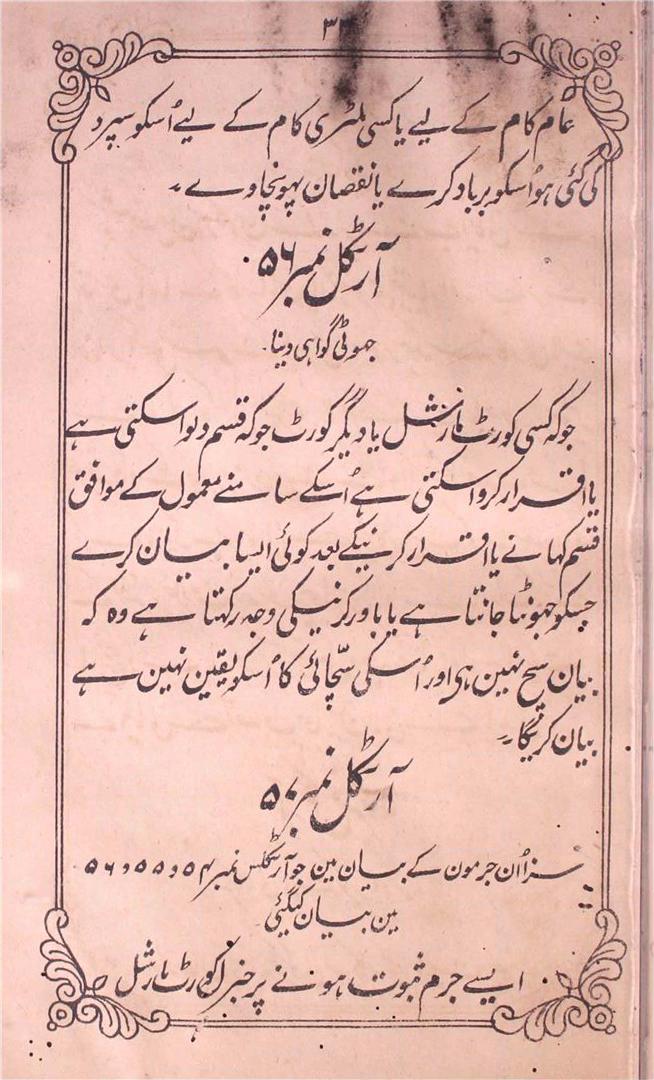 عام کام کے لیے یا کسی ملٹری کام کے لیے اُسکو سپرد
کی گئی ہو اُسکو برباد کرے یا نقصان پہونچاوے ۔
آرٹکل نمبر ۵۶
جھوٹی گواہی دینا ۔
جو کہ کسی کورٹ مارشل یا دیگر کورٹ جو کہ قسم دلوا سکتی ہے
یا اقرار کروا سکتی ہے اُسکے سامنے معمول کے موافق
قسم کہانے یا اقرار کرنیکے بعد کوئی ایسا بیان کرے
جسکو جھوٹا جانتا ہے یا باور کرنیکی وجہ رکہتا ہے وہ کہ
بیان سچ نہین ہی اور اُسکی سچّائی کا اُسکو یقین نہین ہے
بیان کریگا ۔
آرٹکل نمبر ۵۷
سزا اُن جرمون کے بیان مین جو آرٹکلس نمبر ۵۴ و ۵۵ و ۵۶
مین بیان کیگئی
ایسے جرم ثبوت ہونے پر جنرل کورٹ مارشل